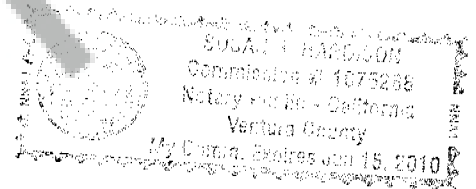 SUSAN
Commission # 1675268
Notary Public - California
Ventura County
My Comm. Expires Jun 15, 2010